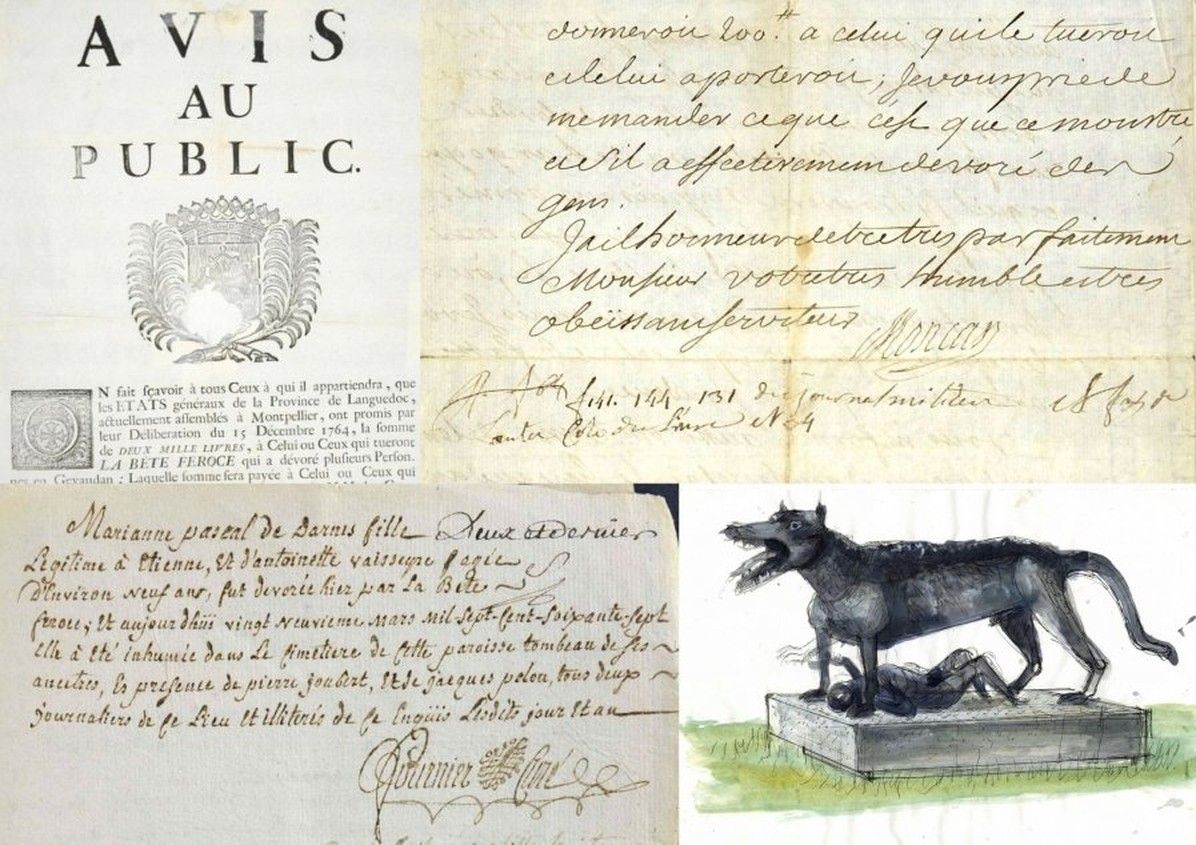 AVIS
AU
PUBLIC.
ON fait sçavoir à tous Ceux à qui il appartiendra, que
les ETATS généraux de la Province de Languedoc,
actuellement assemblés à Montpellier, ont promis par
leur Déliberation du 15 Décembre 1764, la somme
de DEUX MILLE LIVRES, à Celui ou Ceux qui tueront
LA BÊTE FEROCE qui a dévoré plusieurs Person.
nes en Gevaudan : Laquelle somme sera payée à Celui ou Ceux qui
donneroit 200.# a celui qui le tueroit
et le lui aporteroit, Je vous prie de
me mander ce que c'est que ce monstre
et s'il a effectivement devoré des
gens.
J'ai l'honneur detre tres parfaitement
Monsieur votre tres humble et tres
obeïssant serviteur Moncan
141. 144 131 du journal militaire 18
Cote du Livre N. 4
Marianne pascal de Darnes fille Deux et dernier
Légitime à Etienne, Et d'antoinette vaisseyre agée
D'Environ neuf ans, fut devorée hier par La Bete
feroce; Et aujourdhüi vingt neuvieme Mars mil-Sept-Cent-Soixante-Sept
Elle à été inhumée dans Le Cimetiere de Cette paroisse tombeau de ses
ancetres, Es presence de pierre Joubert, Et de jacques pelou, tous deux
journaliers de Ce Lieu Et illiterés de Ce Enqüis Lesdits jour Et an
Fournier Curé